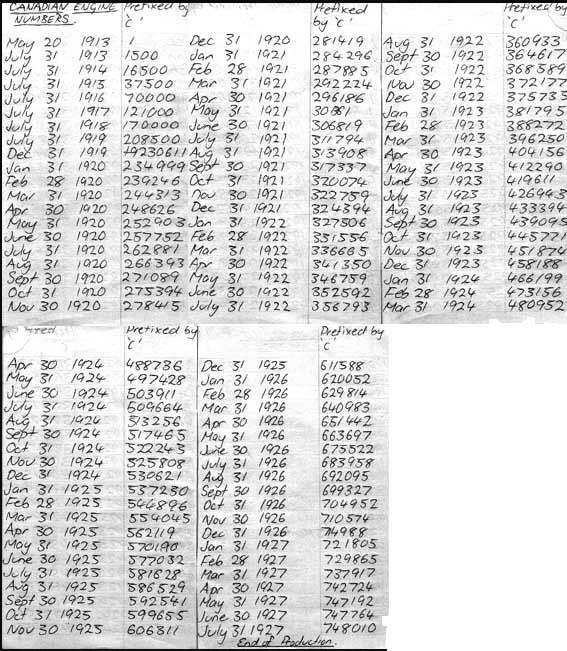 CANADIAN ENGINE NUMBERS. Prefixed 'C'
May 20 1913 1
July 31 1913 1500
July 31 1914 16500
July 31 1915 37500
July 31 1916 70000
July 31 1917 121000
July 31 1918 170000
July 31 1919 208500
Dec 31 1919
Jan 31 1920 234999
Feb 28 1920 239246
Mar 31 1920 244313
Apr 30 1920 248626
May 31 1920 252903
June 30 1920 257752
July 31 1920 262881
Aug 31 1920 266393
Sept 30 1920 271089
Oct 31 1920 275394
Nov 30 1920 278415
Prefixed by 'C'
Dec 31 1920 281419
Jan 31 1921 284296
Feb 28 1921 287885
Mar 31 1921 292224
Apr 30 1921 296186
May 31 1921
June 30 1921 306819
July 31 1921 311794
Aug 31 1921 313908
Sept 30 1921 317337
Oct 31 1921 320074
Nov 30 1921 322759
Dec 31 1921 324394
Jan 31 1922 327506
Feb 28 1922 331556
Mar 31 1922 336665
Apr 30 1922 341350
May 31 1922 346759
June 30 1922 352592
July 31 1922 356793
Prefixed by 'C'
Aug 31 1922 360933
Sept 30 1922 364617
Oct 31 1922 368589
Nov 30 1922 372177
Dec 31 1922 375735
Jan 31 1923 381795
Feb 28 1923 388272
Mar 31 1923 396250
Apr 30 1923 404156
May 31 1923 412290
June 30 1923 419611
July 31 1923 426943
Aug 31 1923 433394
Sept 30 1923 439095
Oct 31 1923 445771
Nov 30 1923 451874
Dec 31 1923 458188
Jan 31 1924 466199
Feb 28 1924 473156
Mar 31 1924 480952
Prefixed by 'C'
Apr 30 1924 488736
May 31 1924 497428
June 30 1924 503911
July 31 1924 509664
Aug 31 1924 513256
Sept 30 1924 517465
Oct 31 1924 522243
Nov 30 1924 525808
Dec 31 1924 530621
Jan 31 1925 537230
Feb 28 1925 544896
Mar 31 1925 554045
Apr 30 1925 562119
May 31 1925 570190
June 30 1925 577032
July 31 1925 581628
Aug 31 1925 586529
Sept 30 1925 592541
Oct 31 1925 599655
Nov 30 1925 606311
Prefixed by 'C'
Dec 31 1925 611588
Jan 31 1926 620052
Feb 28 1926 629814
Mar 31 1926 640983
Apr 30 1926 651442
May 31 1926 663697
June 30 1926 675522
July 31 1926 683958
Aug 31 1926 692095
Sept 30 1926 699327
Oct 31 1926 704952
Nov 30 1926 710574
Dec 31 1926 714988
Jan 31 1927 721805
Feb 28 1927 729865
Mar 31 1927 737917
Apr 30 1927 742724
May 31 1927 747192
June 30 1927 747764
July 31 1927 748010
End of Production.